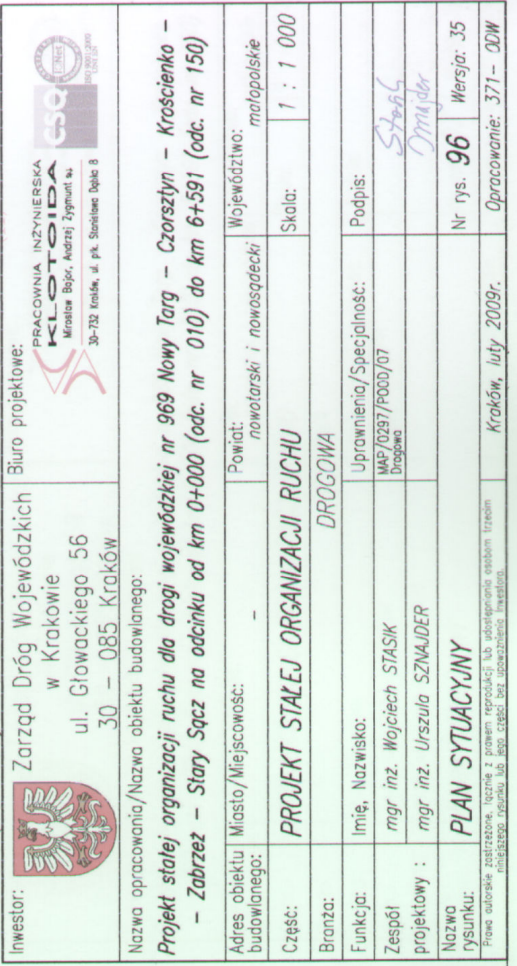 Inwestor:
Zarząd Dróg Wojewódzkich
w Krakowie
ul. Głowackiego 56
30 – 085 Kraków
Biuro projektowe:
PRACOWNIA INŻYNIERSKA
KLOTOIDA
Mirosław Bajor, Andrzej Zygmunt s.j.
30-732 Kraków, ul. płk. Stanisława Dąbka 8
CSQ
IQNet
ISO 9001:2000
Nazwa opracowania/Nazwa obiektu budowlanego:
Projekt stałej organizacji ruchu dla drogi wojewódzkiej nr 969 Nowy Targ – Czorsztyn – Kroscienko –
– Zabrzeż – Stary Sącz na odcinku od km 0+000 (odc. nr 010) do km 6+591 (odc. nr 150)
Adres obiektu budowlanego:
Miasto/Miejscowość:
–
Powiat:
nowotarski i nowosądecki
Województwo:
małopolskie
Część:
PROJEKT STAŁEJ ORGANIZACJI RUCHU
Skala:
1 : 1 000
Branża:
DROGOWA
Funkcja:
Imię, Nazwisko:
Uprawnienia/Specjalność:
Podpis:
Zespół
projektowy :
mgr inż. Wojciech STASIK
MAP/0297/POOD/07
Drogowa
mgr inż. Urszula SZNAJDER
Nazwa
rysunku:
PLAN SYTUACYJNY
Nr rys. 96
Wersja: 35
Prawa autorskie zastrzeżone, łącznie z prawem reprodukcji lub udostępniania osobom trzecim
niniejszego rysunku lub jego części bez upoważnienia Inwestora.
Kraków, luty 2009r.
Opracowanie: 371– ODW